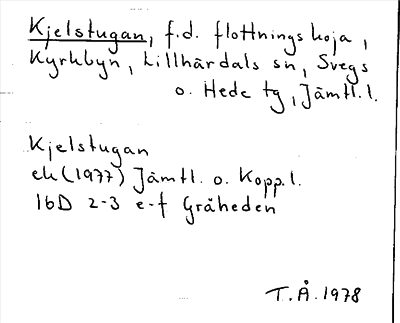 Kjelstugan, f.d. flottningskoja,
Kyrkbyn, Lillhärdals sn, Svegs
o. Hede tg, Jämtl.l.
Kjelstugan
ek (1977) Jämtl. o. Koppl.
16D 2-3 e-f Gråheden
T.Å. 1978